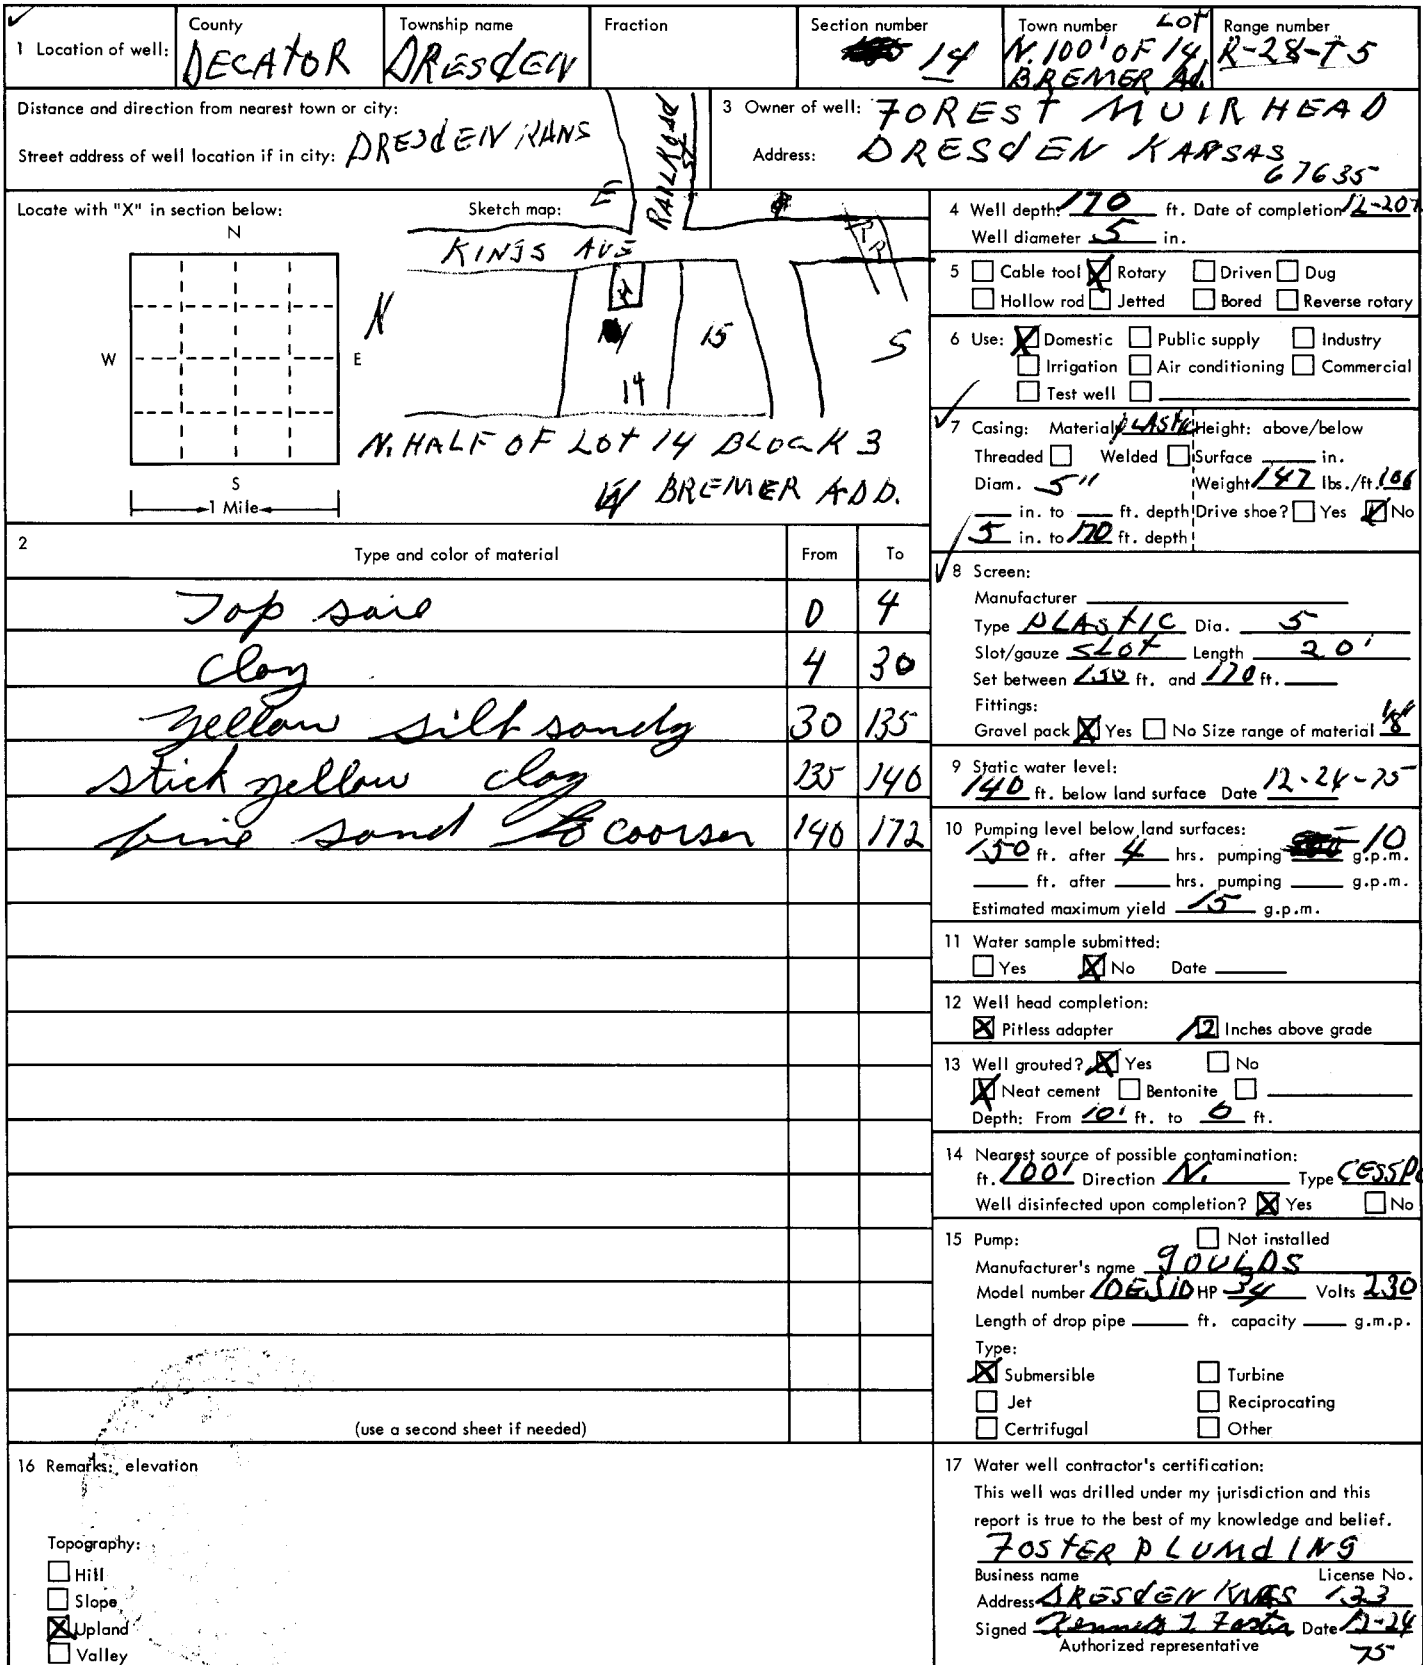 ✓
1 Location of well:
County
DECAtOR
Township name
DREsdEN
Fraction
Section number
14
Town number Lot
N. 100' OF 14
BREMER Ad.
Range number
R-28-T5
Distance and direction from nearest town or city:
Street address of well location if in city: DRESdEN KANS
3 Owner of well: FOREST MUIRHEAD
Address: DRESdEN KANSAS
67635
Locate with "X" in section below:
N
W
E
S
1 Mile
Sketch map:
E
RAILROAD
St
KINGS AVE
RR
N
15
S
14
N. HALF OF LOT 14 BLOCK 3
BREMER ADD.
2
Type and color of material From To
Top soil 0 4
clay 4 30
yellow silt sandy 30 135
stick yellow clay 135 140
fine sand to coorser 140 172
(use a second sheet if needed)
16 Remarks: elevation
Topography:
Hill
Slope
X Upland
Valley
4 Well depth: 170 ft. Date of completion 12-20
Well diameter 5 in.
5 Cable tool X Rotary Driven Dug
Hollow rod Jetted Bored Reverse rotary
6 Use: X Domestic Public supply Industry
Irrigation Air conditioning Commercial
Test well
7 Casing: Material PLAStic Height: above/below
Threaded Welded Surface in.
Diam. 5" Weight 147 lbs./ft. 106
in. to ft. depth Drive shoe? Yes X No
5 in. to 170 ft. depth
8 Screen:
Manufacturer
Type PLAStIC Dia. 5
Slot/gauze SLOt Length 20'
Set between 150 ft. and 170 ft.
Fittings:
Gravel pack X Yes No Size range of material
9 Static water level:
140 ft. below land surface Date 12-24-75
10 Pumping level below land surfaces:
150 ft. after 4 hrs. pumping 10 g.p.m.
ft. after hrs. pumping g.p.m.
Estimated maximum yield 15 g.p.m.
11 Water sample submitted:
Yes X No Date
12 Well head completion:
X Pitless adapter 12 Inches above grade
13 Well grouted? X Yes No
X Neat cement Bentonite
Depth: From 10' ft. to 0 ft.
14 Nearest source of possible contamination:
ft. 100' Direction N. Type CESSPO
Well disinfected upon completion? X Yes No
15 Pump: Not installed
Manufacturer's name GOULDS
Model number HP 3/4 Volts 230
Length of drop pipe ft. capacity g.m.p.
Type:
X Submersible Turbine
Jet Reciprocating
Certrifugal Other
17 Water well contractor's certification:
This well was drilled under my jurisdiction and this
report is true to the best of my knowledge and belief.
FOStER PLUMdING
Business name License No.
Address DRESdEN KANS 133
Signed Kenneth L Foster Date 12-24
Authorized representative 75